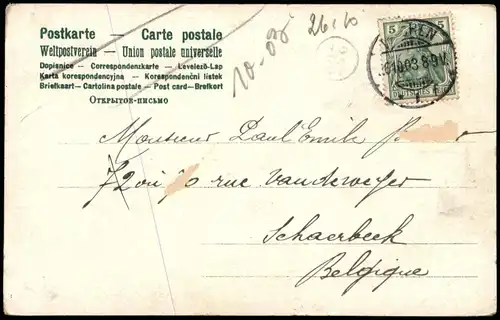 Postkarte — Carte postale
Weltpostverein — Union postale universelle
Dopisnice — Correspondenzkarte — Levelező-Lap
Karta korespondencyjna — Korespondenční listek
Briefkaart — Cartolina postale — Post card — Brefkort
Открытое-письмо
10-03
26/10
5 5
Monsieur Paul Emile
rue Vanderweyer
Schaerbeek
Belgique